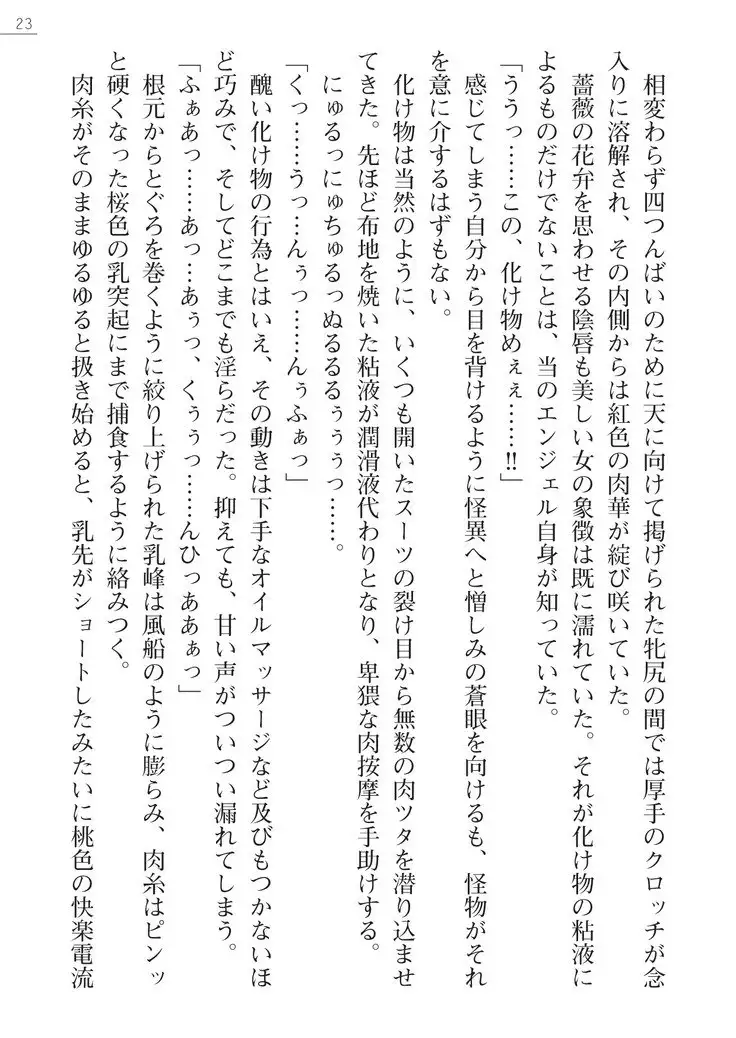 23
相変わらず四つんばいのために天に向けて掲げられた牝尻の間では厚手のクロッチが念
入りに溶解され、その内側からは紅色の肉華が綻び咲いていた。
薔薇の花弁を思わせる陰唇も美しい女の象徴は既に濡れていた。それが化け物の粘液に
よるものだけでないことは、当のエンジェル自身が知っていた。
「ううっ……この、化け物めぇぇ……‼」
感じてしまう自分から目を背けるように怪異へと憎しみの蒼眼を向けるも、怪物がそれ
を意に介するはずもない。
化け物は当然のように、いくつも開いたスーツの裂け目から無数の肉ツタを潜り込ませ
てきた。先ほど布地を焼いた粘液が潤滑液代わりとなり、卑猥な肉按摩を手助けする。
にゅるっにゅちゅるっぬるるるぅぅぅっ……。
「くっ……うっ…んぅっ……んぅふぁっ」
醜い化け物の行為とはいえ、その動きは下手なオイルマッサージなど及びもつかないほ
ど巧みで、そしてどこまでも淫らだった。抑えても、甘い声がついつい漏れてしまう。
「ふぁあっ……あっ…あぅっ、くぅぅっ……んひっああぁっ」
根元からとぐろを巻くように絞り上げられた乳峰は風船のように膨らみ、肉糸はピンッ
と硬くなった桜色の乳突起にまで捕食するように絡みつく。
肉糸がそのままゆるゆると扱き始めると、乳先がショートしたみたいに桃色の快楽電流